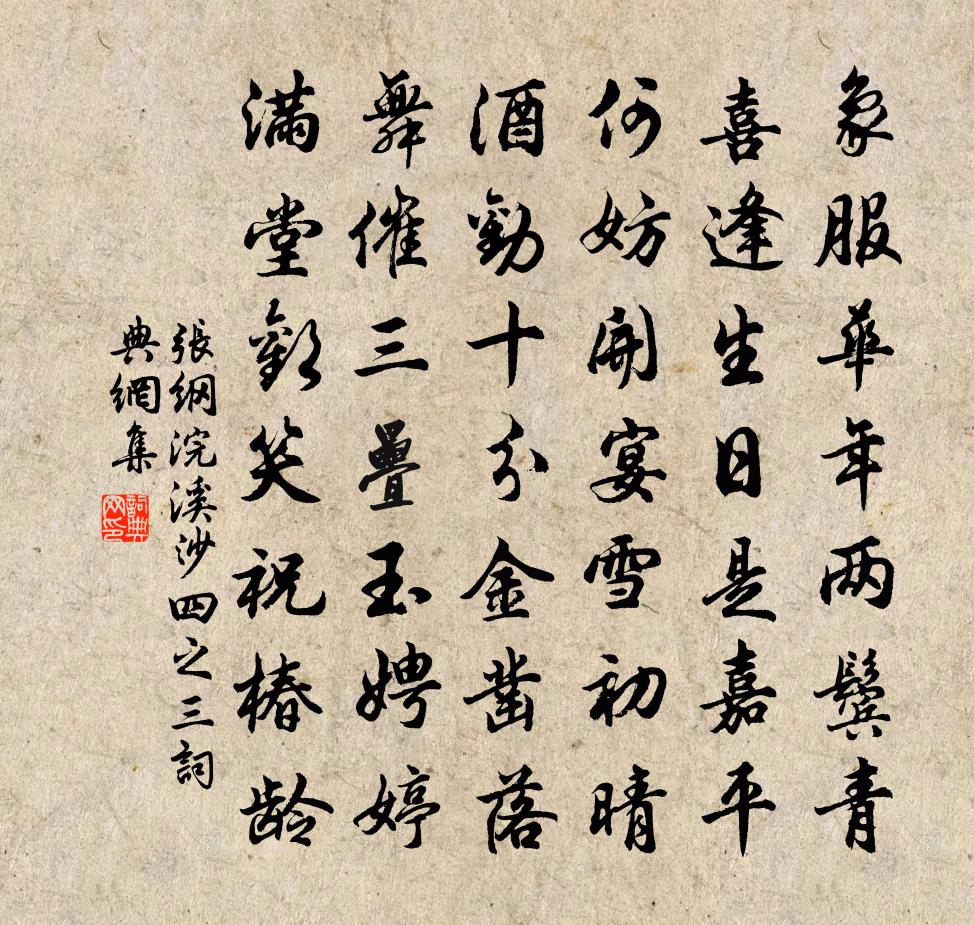 象服華年两鬢青
喜逢生日是嘉平
何妨開宴雪初晴
酒勸十分金凿落
舞催三疊玉娉婷
滿堂歡笑祝椿龄
張纲浣溪沙四之三詞
典網集
詞典网印